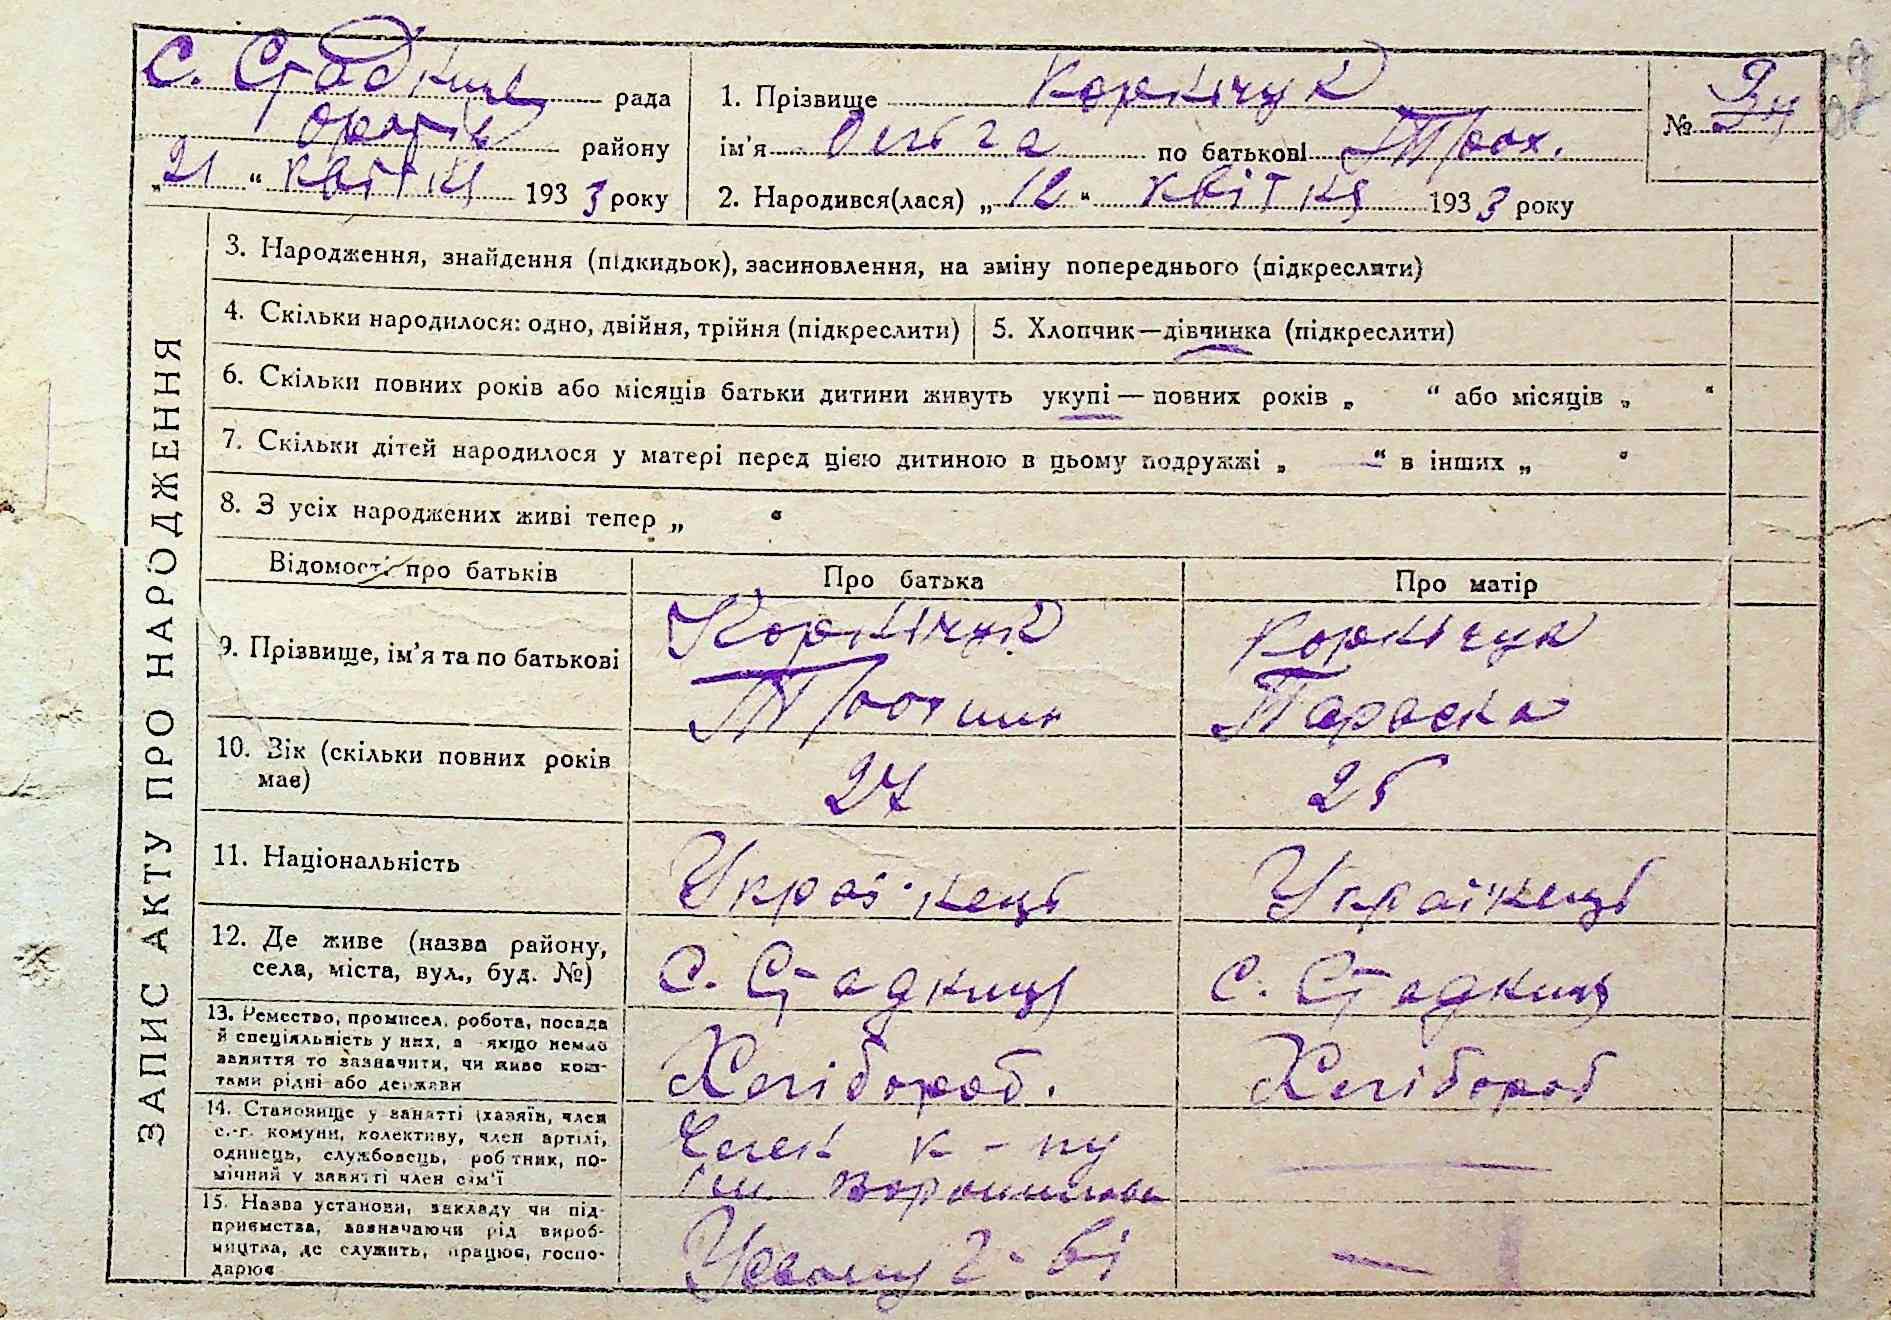 с. Стадниця рада
Оратів району
„21“ квітня 1933 року
1. Прізвище Корнічук
ім'я Ольга по батькові Трох.
2. Народився(лася) „12“ квітня 1933 року
№ 34
ЗАПИС АКТУ ПРО НАРОДЖЕННЯ
3. Народження, знайдення (підкидьок), засиновлення, на зміну попереднього (підкреслити)
4. Скільки народилося: одно, двійня, трійня (підкреслити)
5. Хлопчик—дівчинка (підкреслити)
6. Скільки повних років або місяців батьки дитини живуть укупі — повних років „ “ або місяців „ “
7. Скільки дітей народилося у матері перед цією дитиною в цьому подружжі „ — “ в інших „ “
8. З усіх народжених живі тепер „ “
Відомості про батьків
Про батька
Про матір
9. Прізвище, ім'я та по батькові
Корнічук
Корнічук
Параска
10. Вік (скільки повних років
має)
27
25
11. Національність
Українець
Українець
12. Де живе (назва району,
села, міста, вул., буд. №)
с. Стадниця
с. Стадниця
13. Ремество, промисел, робота, посада
й спеціяльність у них, а якщо немає
заняття то зазначити, чи живе кош-
тами рідні або держави
Хлібороб.
Хлібороб
14. Становище у занятті (хазяїн, член
с.-г. комуни, колективу, член артілі,
одинець, службовець, робітник, по-
мічний у занятті член сім'ї
Член к-пу
ім. Ворошилова
—
15. Назва установи, закладу чи під-
приємства, зазначаючи рід вироб-
ництва, де служить, працює, госпо-
дарює
У своєму г-ві
—